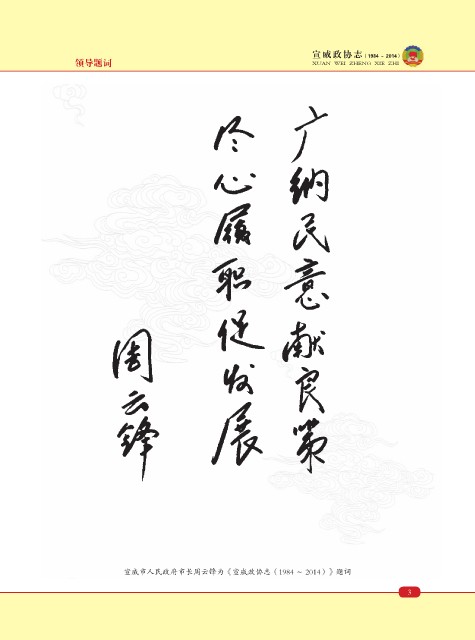 领导题词
宣威政协志（1984 ~ 2014）
XUAN WEI ZHENG XIE ZHI
广纳民意献良策
尽心履职促发展
周云锋
宣威市人民政府市长周云锋为《宣威政协志（1984 ~ 2014）》题词
3